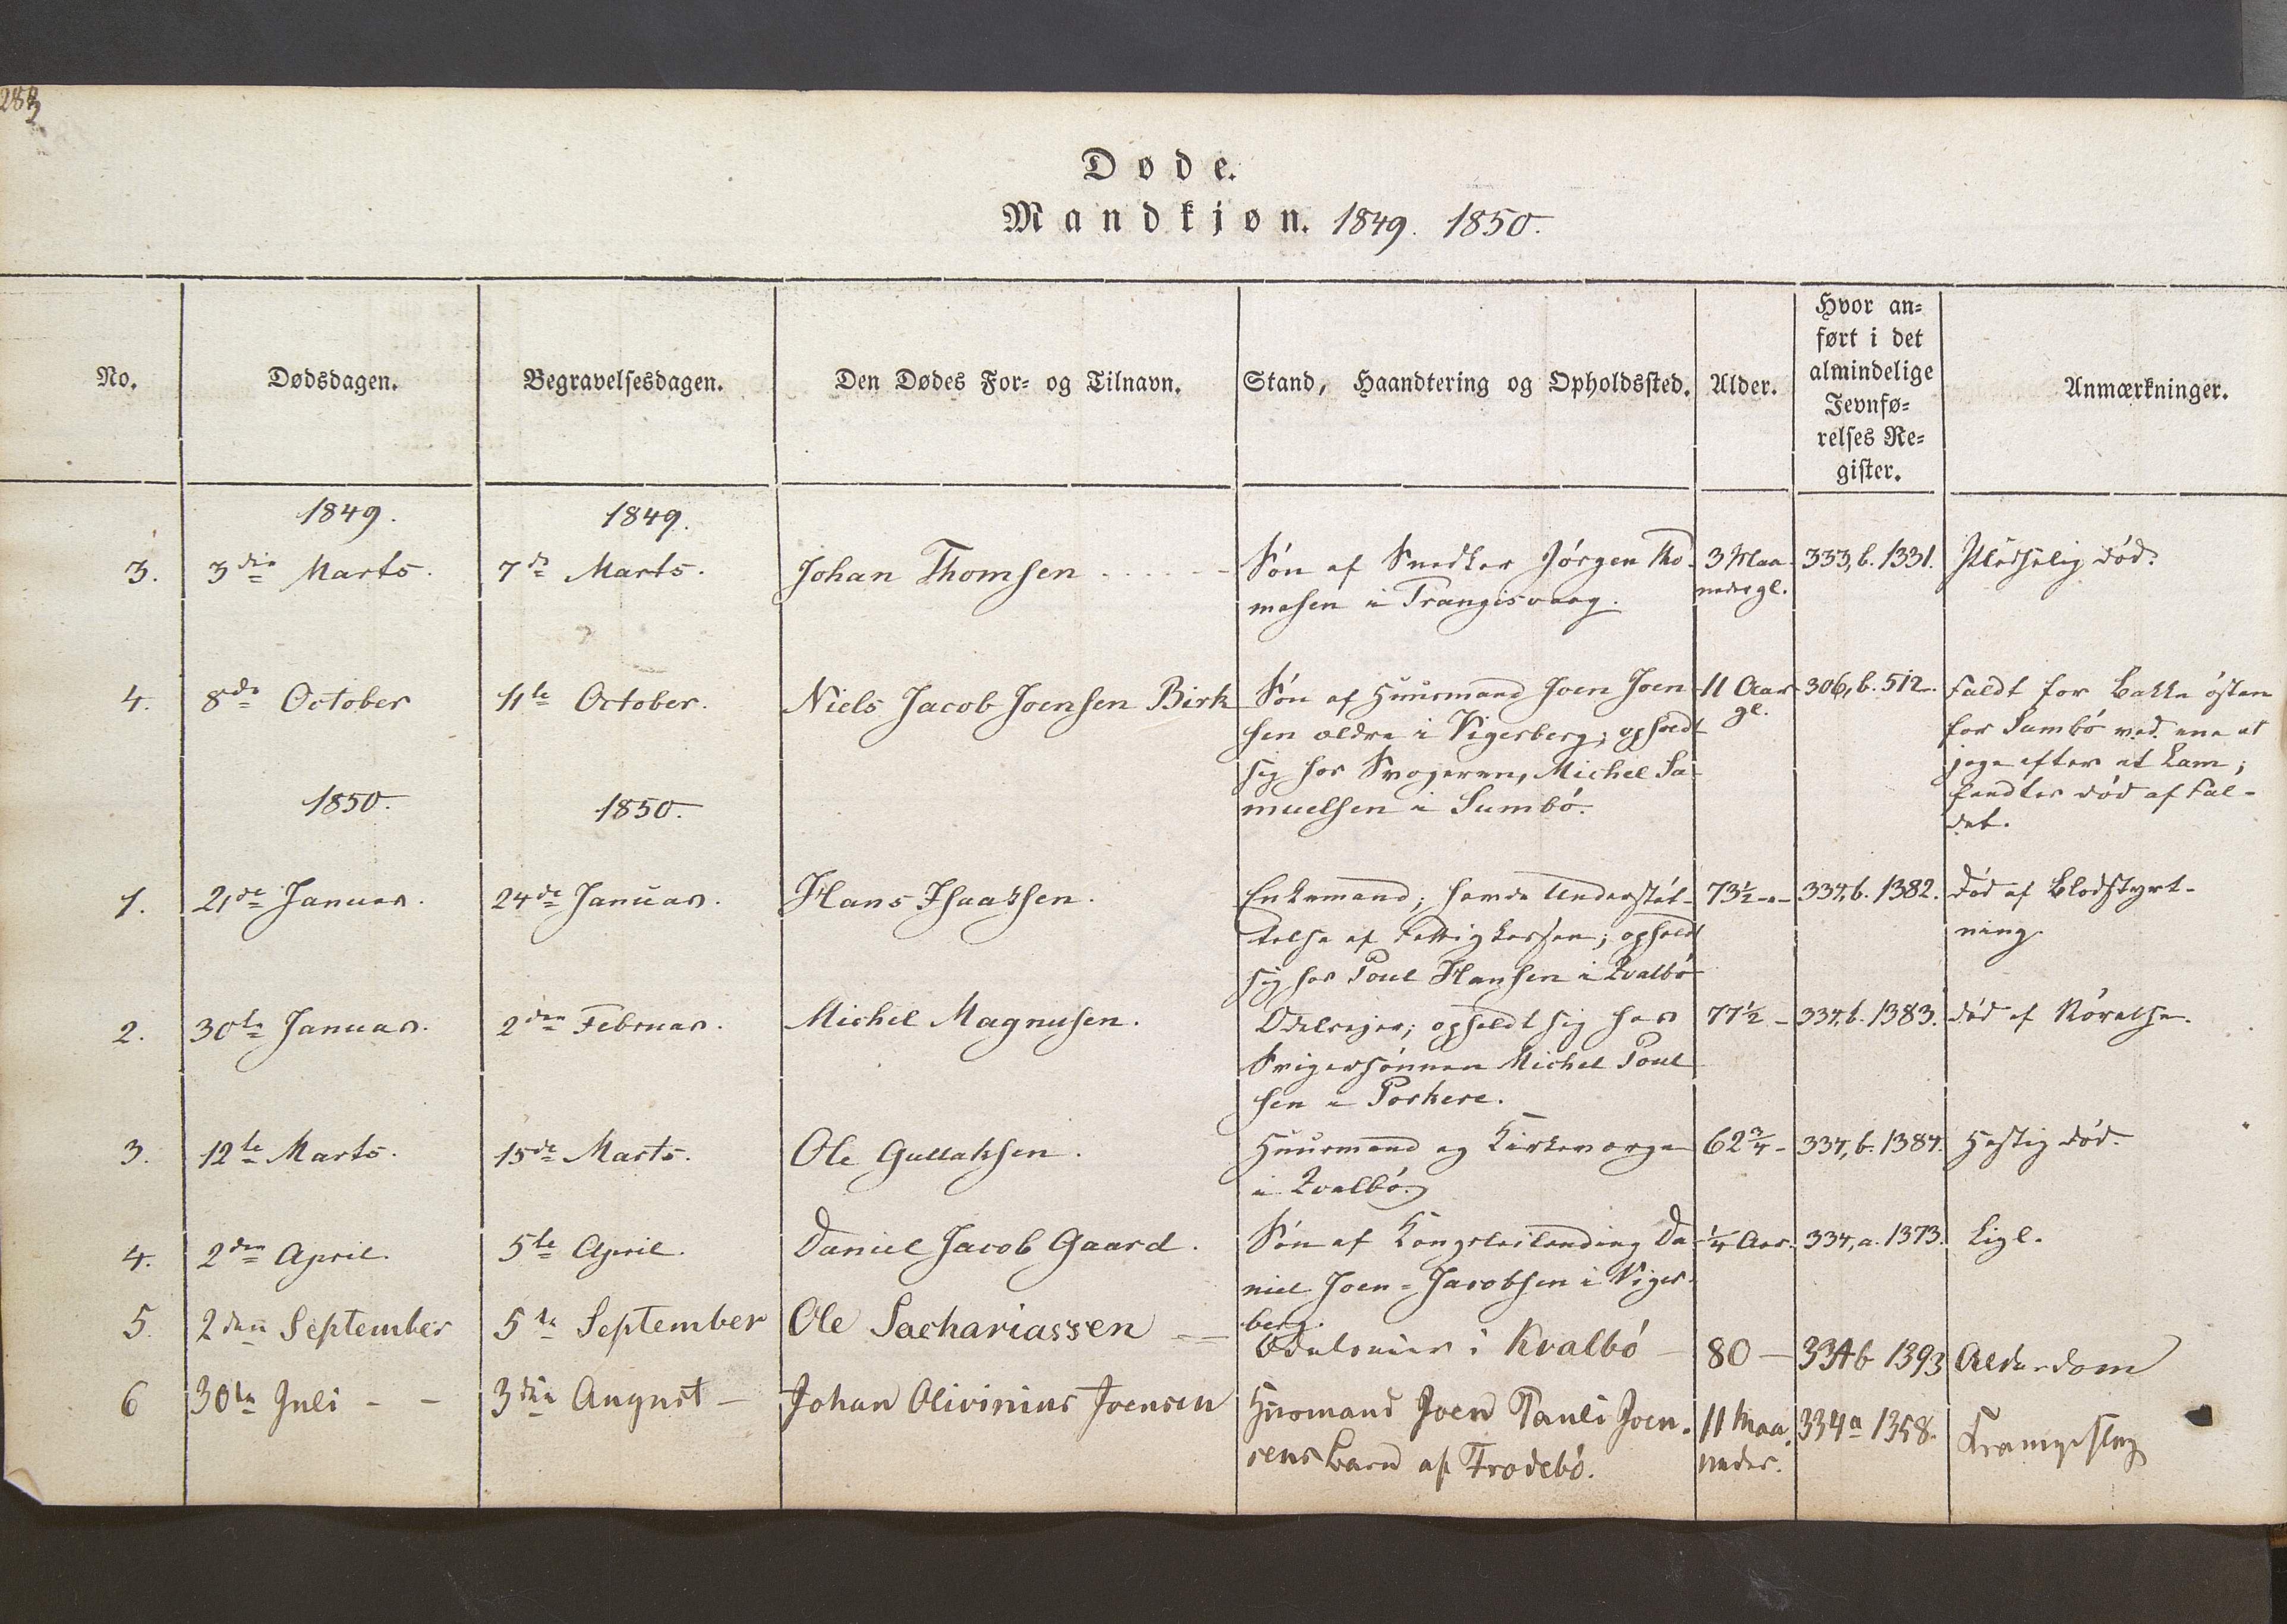 Døde.
Mandkjøn. 1849. 1850.
No.
Dødsdagen.
Begravelsesdagen.
Den Dødes For- og Tilnavn.
Stand, Haandtering og Opholdssted.
Alder.
Hvor an-
ført i det
almindelige
Jevnfø-
relses Re-
gister.
Anmærkninger.
1849.
1849.
3.
3die Marts.
7de Marts.
Johan Thomsen
Søn af Snedker Jørgen Tho-
mesen i Trangisvaag.
3 Maa-
neder gl.
333, b. 1331.
Pludselig død.
4.
8de October
11te October.
Niels Jacob Joensen Birk
Søn af Huusmand Joen Joen
sen ældre i Vigerberg; opholdt
sig hos Svogeren, Michel Sa
muelsen i Sumbø.
11 Aar
gl.
306, b. 512.
faldt for Bakke østen
for Sumbø ved at
jage efter et Lam;
fandtes død af Fal-
det.
1850.
1850.
1.
21de Januar.
24de Januar.
Hans Isaksen.
Enkemand; havde Understøt-
telse af Fattigkassen; opholdt
sig hos Poul Hansen i Qvalbø
73½ -"-
334, b. 1382.
død af Blodstyrt-
ning.
2.
30te Januar.
2den Februar.
Michel Magnusen.
Odelsejer; opholdt sig hos
Svigersønnen Michel Poul
sen i Porkere.
77½ -
334, b. 1383.
død af Rørelse.
3.
12te Marts.
15de Marts.
Ole Gullaksen.
Huusmand og Kirkeværge
i Qvalbø.
62¾ -
334, b. 1384.
Hastig død.
4.
2den April.
5te April.
Daniel Jacob Gaard.
Søn af Kongsleilænding Da
niel Joen-Jacobsen i Viger-
berg.
¼ Aar.
334, a. 1373.
Ligl.
5.
2den September
5te September
Ole Sachariassen
Odelseier i Kvalbø
80 -
334 b 1393
Alderdom
6
30te Juli - -
3die August -
Johan Olivinius Joensen
Husmand Joen Pauli Joen-
sens Barn af Frodebø.
11 Maa
neder.
334 a 1358.
Krampeslag